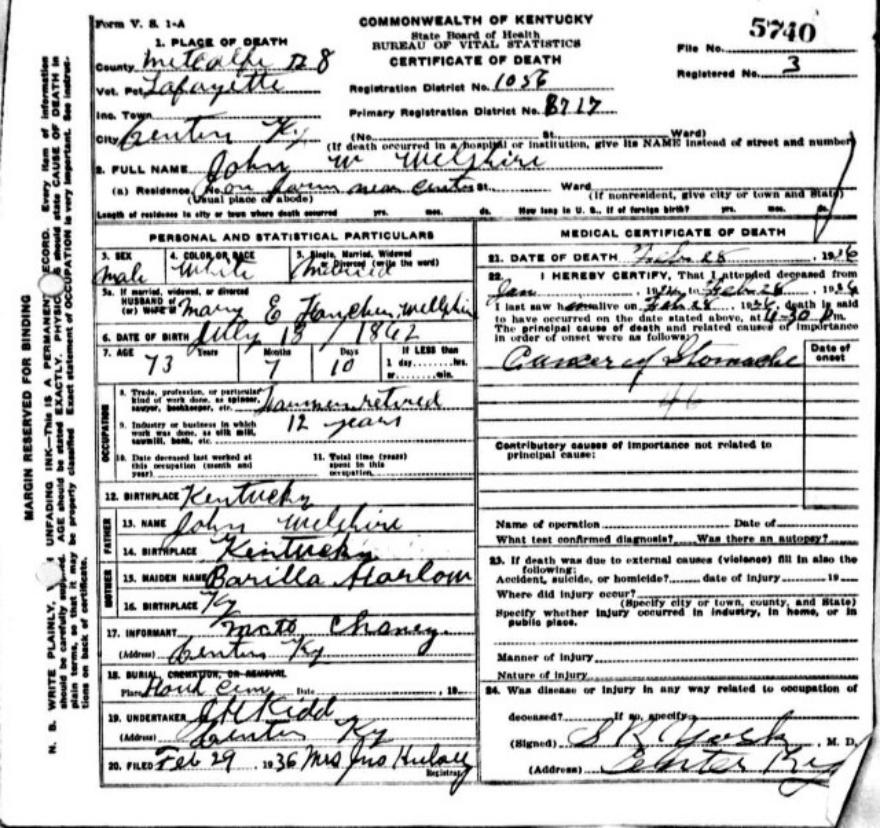 Form V. S. 1-A
COMMONWEALTH OF KENTUCKY
State Board of Health
BUREAU OF VITAL STATISTICS
CERTIFICATE OF DEATH
5740
File No.
Registered No. 3
1. PLACE OF DEATH
County Metcalfe
Vot. Pct. Lafayette
Inc. Town
City Center Ky
Registration District No. 1056
Primary Registration District No. 8717
(No. St. Ward)
(If death occurred in a hospital or institution, give its NAME instead of street and number)
2. FULL NAME John W Welshire
(a) Residence. No. on farm near Center St. Ward
(Usual place of abode) (If nonresident, give city or town and State)
Length of residence in city or town where death occurred yrs. mos. ds. How long in U. S., if of foreign birth? yrs. mos. ds.
PERSONAL AND STATISTICAL PARTICULARS
3. SEX Male
4. COLOR OR RACE White
5. Single, Married, Widowed or Divorced (write the word)
5a. If married, widowed, or divorced
HUSBAND of
(or) WIFE of Mary E
6. DATE OF BIRTH July 18 / 1862
7. AGE 73 Years 7 Months 10 Days
If LESS than
1 day........hrs.
or........min.
OCCUPATION
8. Trade, profession, or particular kind of work done, as spinner, sawyer, bookkeeper, etc. retired
9. Industry or business in which work was done, as silk mill, sawmill, bank, etc. 12 years
10. Date deceased last worked at this occupation (month and year)
11. Total time (years) spent in this occupation
12. BIRTHPLACE Kentucky
FATHER
13. NAME John Welshire
14. BIRTHPLACE Kentucky
MOTHER
15. MAIDEN NAME Barilla Harlow
16. BIRTHPLACE Ky
17. INFORMANT Chaney
(Address) Center Ky
18. BURIAL, CREMATION, OR REMOVAL
Place Cem Date , 19
19. UNDERTAKER J H Kidd
(Address) Center Ky
20. FILED Feb 29 1936 Mrs Jno
Registrar
MEDICAL CERTIFICATE OF DEATH
21. DATE OF DEATH Feb 28, 1936
22. I HEREBY CERTIFY, That I attended deceased from
Jan , 19 to Feb 28 , 1936
I last saw him alive on Feb 28 1936, death is said
to have occurred on the date stated above, at 4-30 P m.
The principal cause of death and related causes of importance
in order of onset were as follows:
Date of onset
Cancer of Stomache
46
Contributory causes of importance not related to
principal cause:
Name of operation Date of
What test confirmed diagnosis? Was there an autopsy?
23. If death was due to external causes (violence) fill in also the
following:
Accident, suicide, or homicide? date of injury 19
Where did injury occur?
(Specify city or town, county, and State)
Specify whether injury occurred in industry, in home, or in
public place.
Manner of injury
Nature of injury
24. Was disease or injury in any way related to occupation of
deceased? If so, specify
(Signed) S K York, M. D.
(Address) Center Ky
MARGIN RESERVED FOR BINDING
N. B. WRITE PLAINLY, UNFADING INK—This is A PERMANENT RECORD. Every item of information
should be carefully supplied. AGE should be stated EXACTLY. PHYSICIANS should state CAUSE OF DEATH in
plain terms, so that it may be properly classified. Exact statement of OCCUPATION is very important. See instruc-
tions on back of certificate.